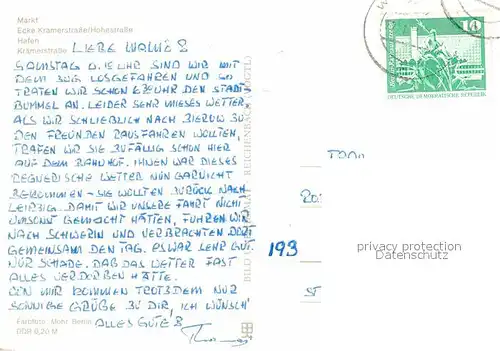 Markt
Ecke Krämerstraße/Hohestraße
Hafen
Krämerstraße
LIEBE
SAMSTAG 0.15 UHR SIND WIR MIT
DEM ZUG LOSGEFAHREN UND SO
TRATEN WIR SCHON UHR DEN STADT-
BUMMEL AN. LEIDER SEHR MIESES WETTER.
ALS WIR SCHLIEßLICH NACH ZU
DEN FREUNDEN RAUSFAHREN WOLLTEN,
TRAFEN WIR SIE ZUFÄLLIG SCHON HIER
AUF DEM BAHNHOF. IHNEN WAR DIESES
REGNERISCHE WETTER NUN GARNICHT
BEKOMMEN - SIE WOLLTEN ZURÜCK NACH
LEIPZIG. DAMIT WIR UNSERE FAHRT NICHT
UMSONST GEMACHT HÄTTEN, FUHREN WIR
NACH SCHWERIN UND VERBRACHTEN DORT
GEMEINSAM DEN TAG. ES WAR SEHR GUT
NUR SCHADE, DAß DAS WETTER FAST
ALLES VERDORBEN HÄTTE.
VON MIR KOMMEN TROTZDEM NUR
SONNIGE GRÜßE ZU DIR, ICH WÜNSCH'
ALLES GUTE
Farbfoto: Mohr, Berlin
DDR 0,20 M
BILD UND HEIMAT REICHENBACH (VOGTL)
10
DEUTSCHE DEMOKRATISCHE REPUBLIK
193
privacy protection
Datenschutz